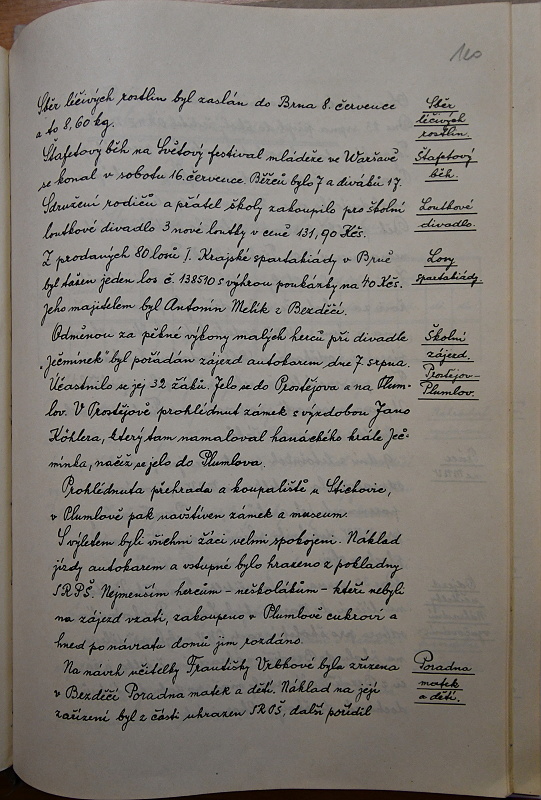 120
Sběr léčivých rostlin byl zaslán do Brna 8. července
a to 8,60 kg.
Sběr
léčivých
rostlin.
Štafetový běh na Světový festival mládeže ve Waršavě
se konal v sobotu 16. července. Běžců bylo 7 a diváků 17.
Štafetový
běh.
Sdružení rodičů a přátel školy zakoupilo pro školní
loutkové divadlo 3 nové loutky v ceně 131,90 Kčs.
Loutkové
divadlo.
Z prodaných 80 losů I. Krajské spartakiády v Brně
byl tažen jeden los č. 138510 s výhrou poukázky na 40 Kčs.
Jeho majitelem byl Antonín Melík z Bezděčí.
Losy
spartakiády.
Odměnou za pěkné výkony malých herců při divadle
„Ječmínek" byl pořádán zájezd autokarem dne 7 srpna.
Účastnilo se jej 32 žáků. Jelo se do Prostějova a na Plum-
lov. V Prostějově prohlédnut zámek s výzdobou Jano
Köhlera, který tam namaloval hanáckého krále Ječ-
mínka, načež se jelo do Plumlova.
Školní
zájezd.
Prostějov-
Plumlov.
Prohlédnuta přehrada a koupaliště u Stichovic,
v Plumlově pak navštíven zámek a museum.
S výletem byli všichni žáci velmi spokojeni. Náklad
jízdy autokarem a vstupné bylo hrazeno z pokladny
SRPŠ. Nejmenším hercům - neškolákům - kteří nebyli
na zájezd vzati, zakoupeno v Plumlově cukroví a
hned po návratu domů jim rozdáno.
Na návrh učitelky Františky Vrbkové byla zřízena
v Bezděčí Poradna matek a dětí. Náklad na její
zařízení byl z části uhrazen SRPŠ, další pořídil
Poradna
matek
a dětí.